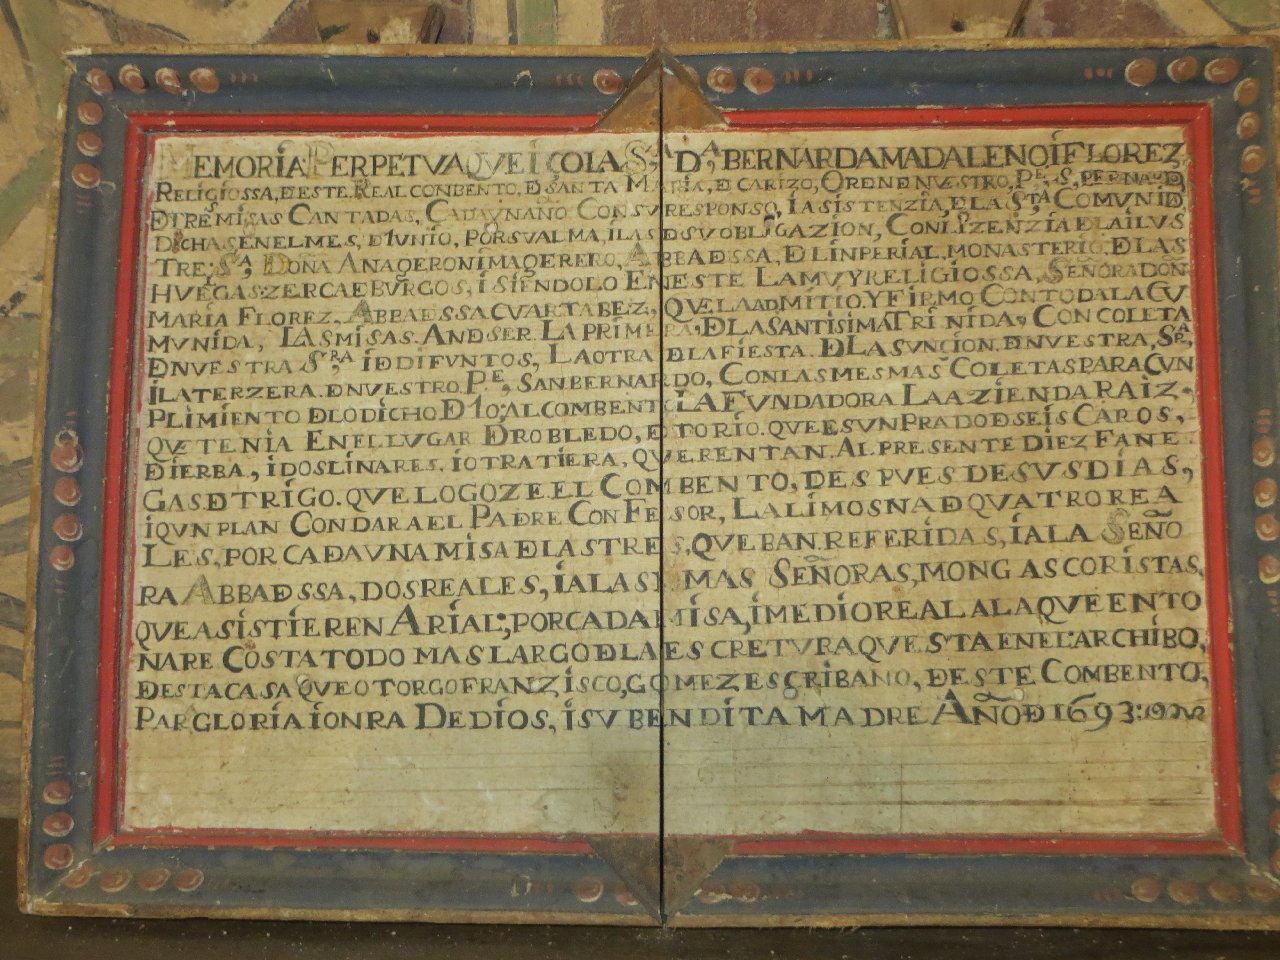 MEMORIA PERPETVA QVE ICO LA S.A D.A BERNARDA MADALENO IFLOREZ,
RELIGIOSSA, DESTE REAL CONBENTO. D SANTA MARIA, D CARIZO, ORDEN D NVESTRO, P.E, S, BERNARD
D TRES MISAS CANTADAS, CADA VN AÑO CON SV RESPONSO, I ASISTENZIA, D LA S.TA COMVNID
DICHAS EN EL MES, D IVNIO, POR SV ALMA, I LAS D SV OBLIGAZION, CON LIZENZIA D LA ILVS
TRE; S.A; DOÑA ANA GERONIMA GERERO, ABBADSSA, D L INPERIAL, MONASTERIO, D LAS
HVEGAS: ZERCA E BVRGOS, I SIENDOLO EN ESTE LA MVY RELIGIOSSA, SEÑORA DOÑ
MARIA FLOREZ, ABBAESSA CVARTA BEZ, QVE LA ADMITIO. Y FIRMO CON TODA LA CV
MVNIDA, LAS MISAS. AN D SER. LA PRIMERA, D LA SANTISIMA TRINIDA, CON COLETA
D NVESTRA S.RA I D DIFVNTOS, LA OTRA D LA FIESTA. D LA SVNCION. D NVESTRA, S.RA
I LATERZERA. D NVESTRO P.E, SAN BERNARDO, CON LAS MESMAS COLETAS PARA CVN
PLIMIENTO D LO DICHO D IO: AL COMBENTO LA FVNDADORA LA AZIENDA RAIZ-
QVE TENIA EN EL LVGAR D ROBLEDO, D TORIO. QVE ES VN PRADO D SEIS CAROS,
D IERBA, I DOS LINARES. I OTRA TIERA, QVE RENTAN. AL PRESENTE DIEZ FANE
GAS D TRIGO. QVE LO GOZE EL COMBENTO, DESPVES DE SVS DIAS,
I QVN PLAN CON DAR A EL PADRE CONFESOR, LA LIMOSNA D QVATRO REA
LES, POR CADA VNA MISA D LAS TRES, QVE BAN. REFERIDAS, I A LA SEÑO
RA ABBADSSA, DOS REALES, I A LAS D MAS SEÑORAS, MONGAS CORISTAS,
QVE ASISTIEREN A ORIAL; POR CADA MISA, I MEDIO REAL A LA QVE ENTO
NARE COSTA TODO MAS LARGO D LA ESCRETVRA QVE STA EN EL: ARCHIBO,
DESTA CASA QVE OTORGO FRANZISCO, GOMEZ ESCRIBANO, DESTE COMBENTO,
PAR GLORIA I ONRA DE DIOS, I SV BENDITA MADRE AÑO D 1693: